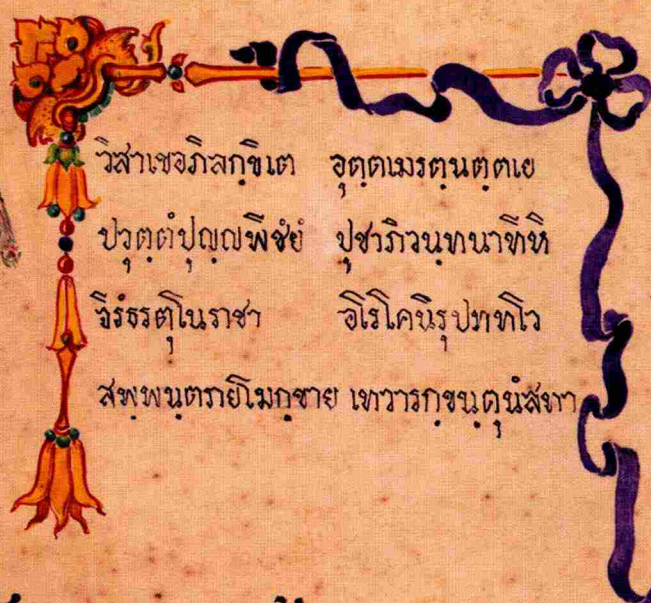 วิสาเขอภิลกฺขิเต อุตฺตเมรตฺนตฺตเย
ปวุตฺตํปุญฺญพีชํยํ ปูชาภิวนฺทนาทีหิ
จิรํธรตุโนราชา อโรโคนิรุปทฺทโว
สพฺพนฺตรายโมกฺขาย เทวารกฺขนฺตุนํสทา